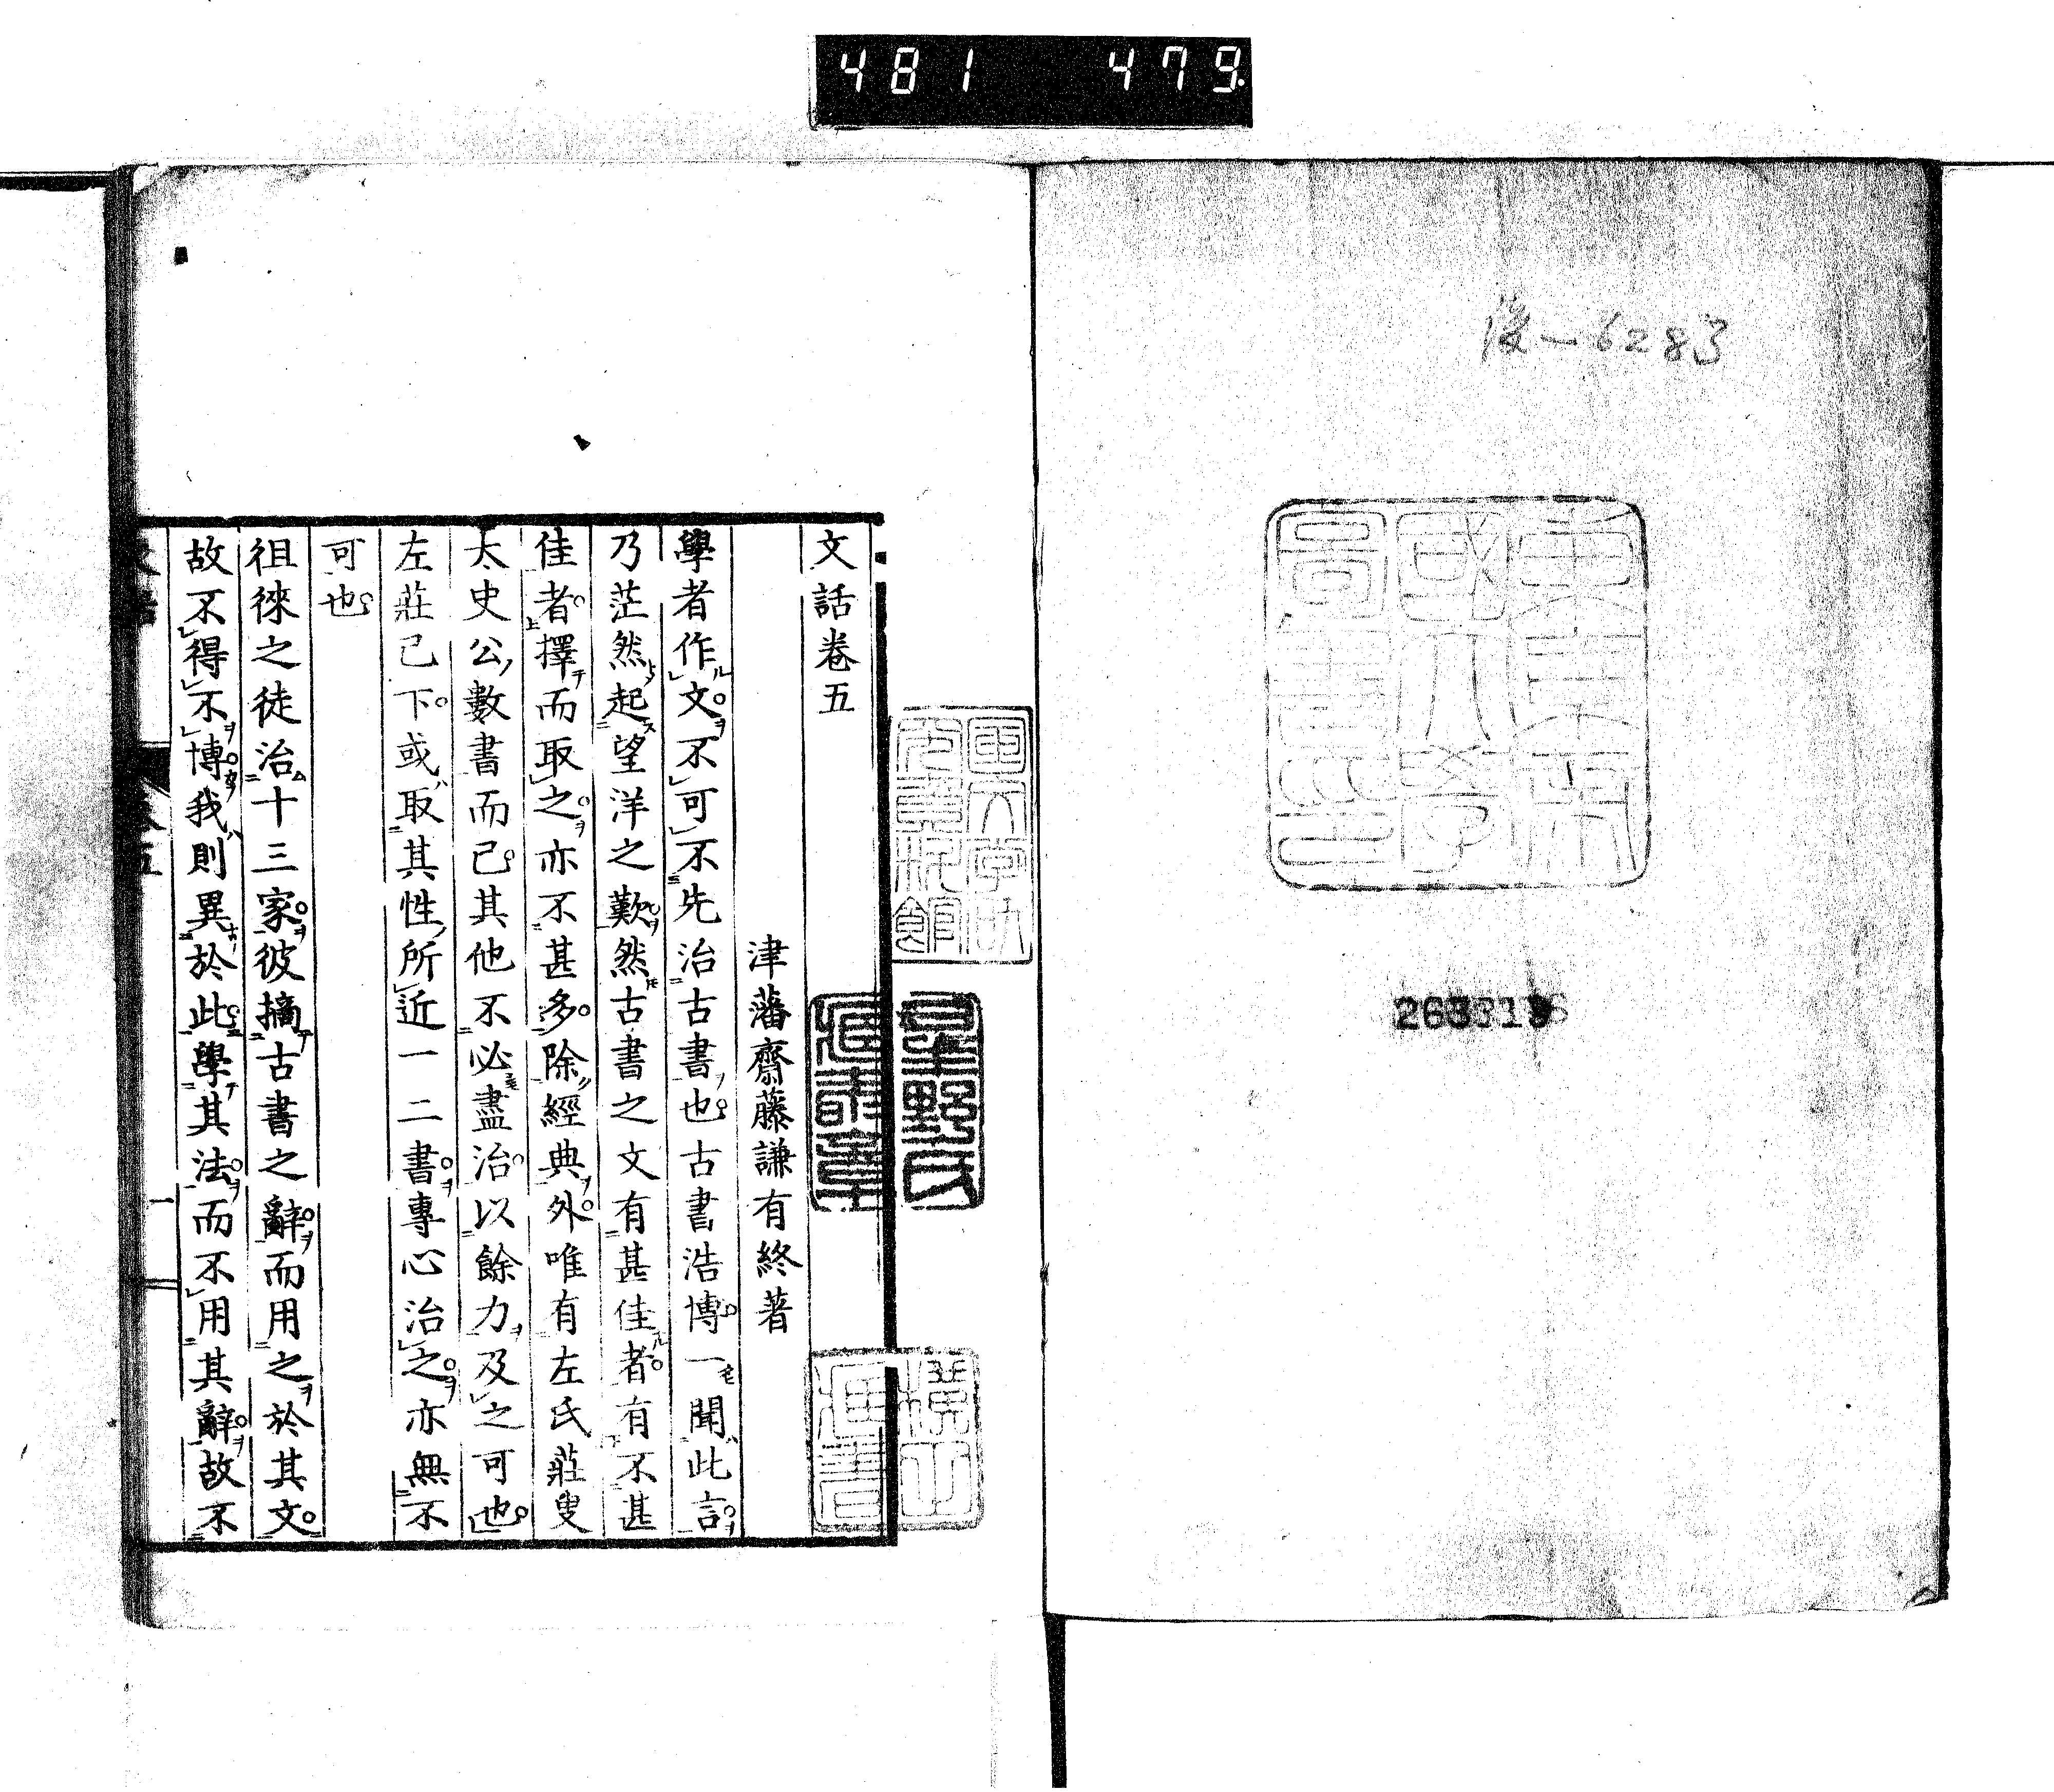 481 479
後-6283
東京帝國大學圖書印
263313
文話卷五
津藩齋藤謙有終著
學者作文不可不先治古書也古書浩博一聞此言
乃茫然起望洋之歎然古書之文有甚佳者有不甚
佳者擇而取之亦不甚多除經典外唯有左氏莊叟
太史公數書而已其他不必盡治以餘力及之可也
左莊已下或取其性所近一二書專心治之亦無不
可也
徂徠之徒治十三家彼摘古書之辭而用之於其文
故不得不博我則異於此學其法而不用其辭故不
星野氏